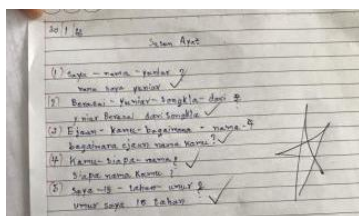 Susun Ayat
(1) Saya - nama - yuniar ?
nama saya yuniar
(2) Berasal - Yuniar - Songkla - dari
yuniar Berasal dari Songkla
(3) Ejaan - Kamu - bagaimana - nama ?
bagaimana ejaan nama kamu ?
(4) Kamu - Siapa - nama ?
Siapa nama Kamu ?
(5) Saya - 18 - tahun - umur
umur saya 18 tahun